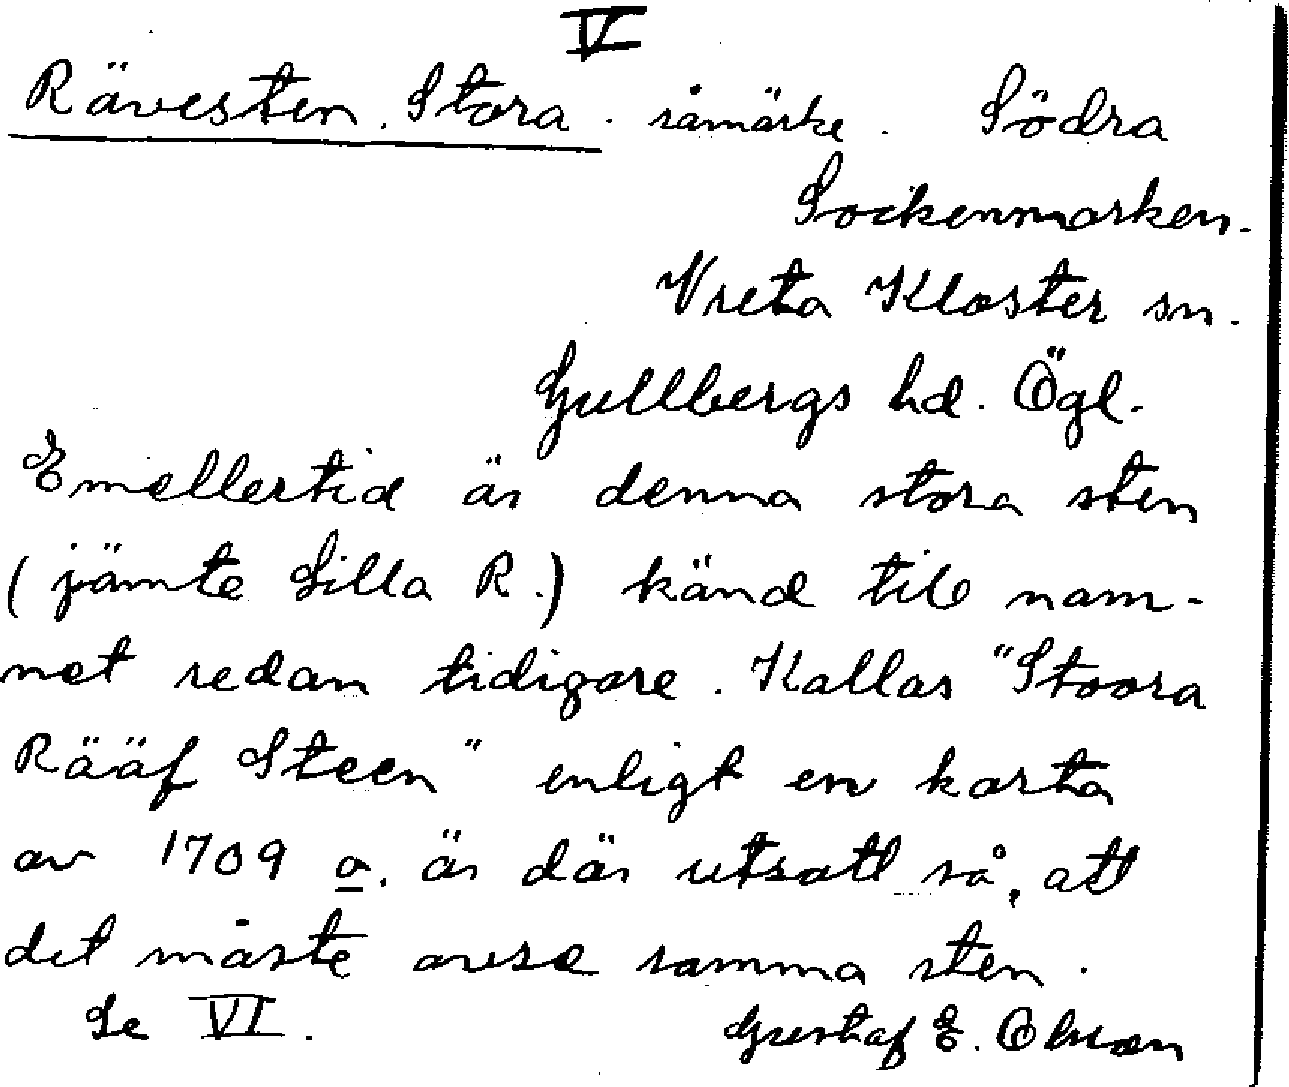 V
Rävesten. Stora. råmärke. Södra
Sockenmarken.
Vreta Kloster sn.
Gullbergs hd. Ögl.
Emellertid är denna stora sten
(jämte Lilla R.) känd till nam-
net redan tidigare. Kallas "Stoora
Rääf Steen" enligt en karta
av 1709 o. är där utsatt så, att
det måste avse samma sten.
Se VI.
Gustaf E. Olsson